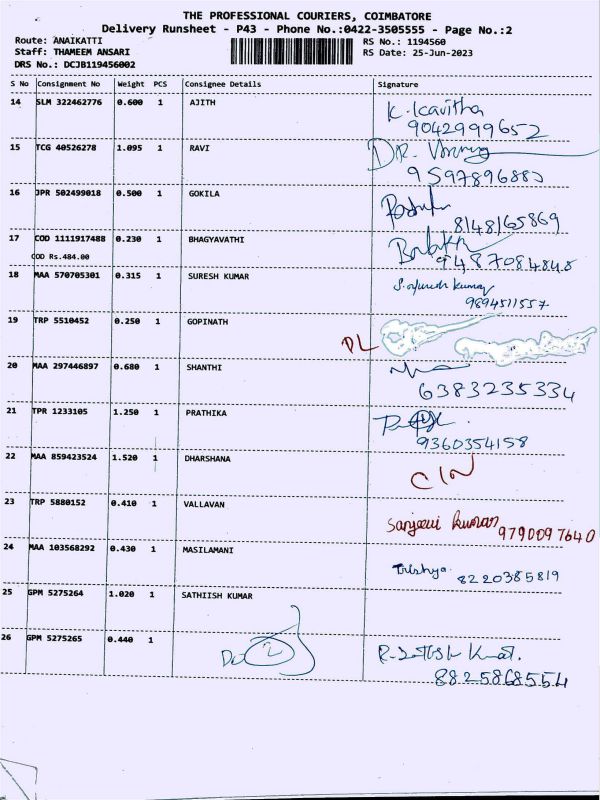 THE PROFESSIONAL COURIERS, COIMBATORE
Delivery Runsheet - P43 - Phone No.:0422-3505555 - Page No.:2
Route: ANAIKATTI
RS No.: 1194560
Staff: THAMEEM ANSARI
RS Date: 25-Jun-2023
DRS No.: DCJB119456002
S No Consignment No Weight PCS Consignee Details Signature
14 SLM 322462776 0.600 1 AJITH K. Kavitha
9042999652
15 TCG 40526278 1.095 1 RAVI DR.
9597896883
16 JPR 502499018 0.500 1 GOKILA
8148165869
17 COD 1111917488 0.230 1 BHAGYAVATHI
COD Rs.484.00 9487084848
18 MAA 570705301 0.315 1 SURESH KUMAR S. Suresh kumar
9894511557
19 TRP 5510452 0.250 1 GOPINATH
DL
20 MAA 297446897 0.680 1 SHANTHI
6383235334
21 TPR 1233105 1.250 1 PRATHIKA
9360354158
22 MAA 859423524 1.520 1 DHARSHANA
CIN
23 TRP 5880152 0.410 1 VALLAVAN Sanjeevi kumar
9790097640
24 MAA 103568292 0.430 1 MASILAMANI Trishya. 8220385819
25 GPM 5275264 1.020 1 SATHIISH KUMAR
26 GPM 5275265 0.440 1 2 R. Satish Kumar.
8825868554